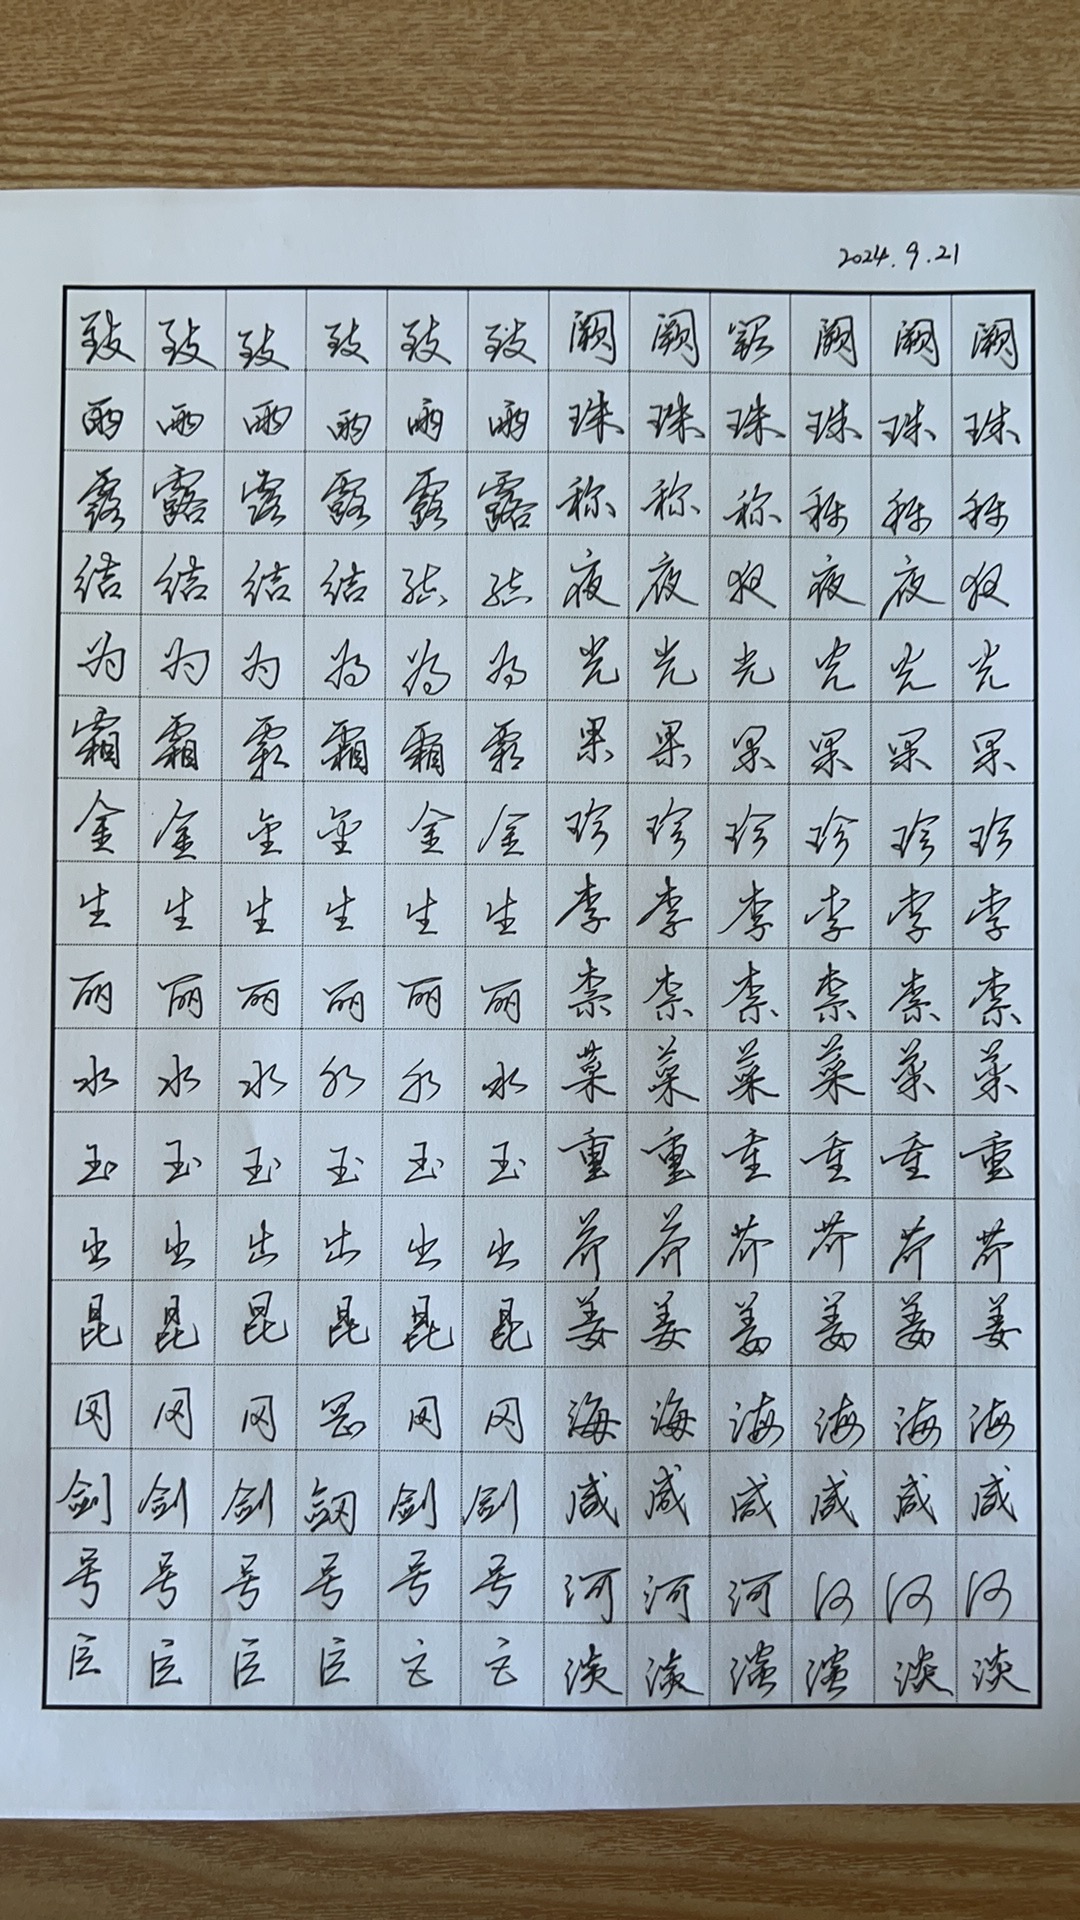 2024.9.21
致致致致致致阙阙阙阙阙阙
雨雨雨雨雨雨珠珠珠珠珠珠
露露露露露露称称称称称称
结结结结结结夜夜夜夜夜夜
为为为为为为光光光光光光
霜霜霜霜霜霜果果果果果果
金金金金金金珍珍珍珍珍珍
生生生生生生李李李李李李
丽丽丽丽丽丽柰柰柰柰柰柰
水水水水水水菜菜菜菜菜菜
玉玉玉玉玉玉重重重重重重
出出出出出出芥芥芥芥芥芥
昆昆昆昆昆昆姜姜姜姜姜姜
冈冈冈冈冈冈海海海海海海
剑剑剑剑剑剑咸咸咸咸咸咸
号号号号号号河河河河河河
巨巨巨巨巨巨淡淡淡淡淡淡